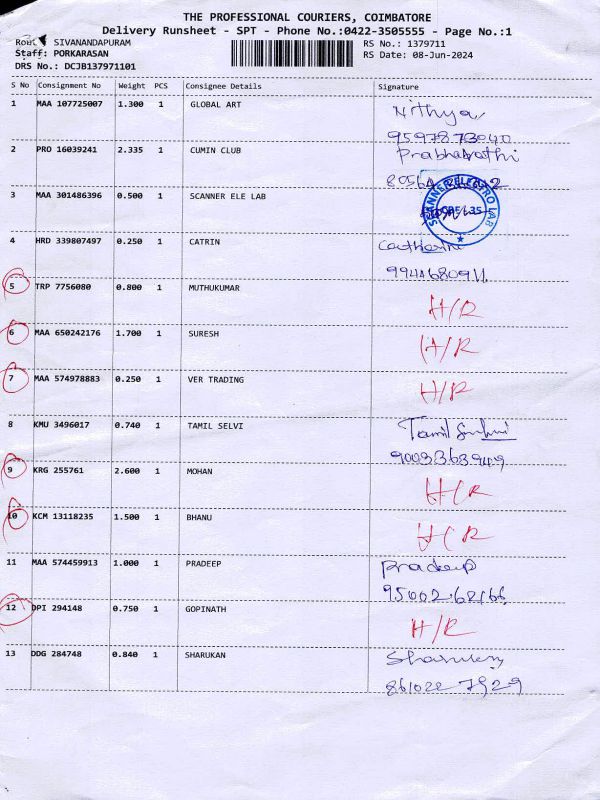 THE PROFESSIONAL COURIERS, COIMBATORE
Delivery Runsheet - SPT - Phone No.:0422-3505555 - Page No.:1
SIVANANDAPURAM
RS No.: 1379711
Staff: PORKARASAN
RS Date: 08-Jun-2024
DRS No.: DCJB137971101
S No Consignment No Weight PCS Consignee Details Signature
1 MAA 107725007 1.300 1 GLOBAL ART Nithya
9597873040
2 PRO 16039241 2.335 1 CUMIN CLUB Prabhavathi
3 MAA 301486396 0.500 1 SCANNER ELE LAB
SCANNER ELECTRO LAB
4 HRD 339807497 0.250 1 CATRIN
9944680911
5 TRP 7756080 0.800 1 MUTHUKUMAR H/R
6 MAA 650242176 1.700 1 SURESH H/R
7 MAA 574978883 0.250 1 VER TRADING H/R
8 KMU 3496017 0.740 1 TAMIL SELVI Tamil
9003363949
9 KRG 255761 2.600 1 MOHAN H/R
10 KCM 13118235 1.500 1 BHANU H/R
11 MAA 574459913 1.000 1 PRADEEP Pradeep
95002 62166
12 DPI 294148 0.750 1 GOPINATH H/R
13 DDG 284748 0.840 1 SHARUKAN
861022 7929